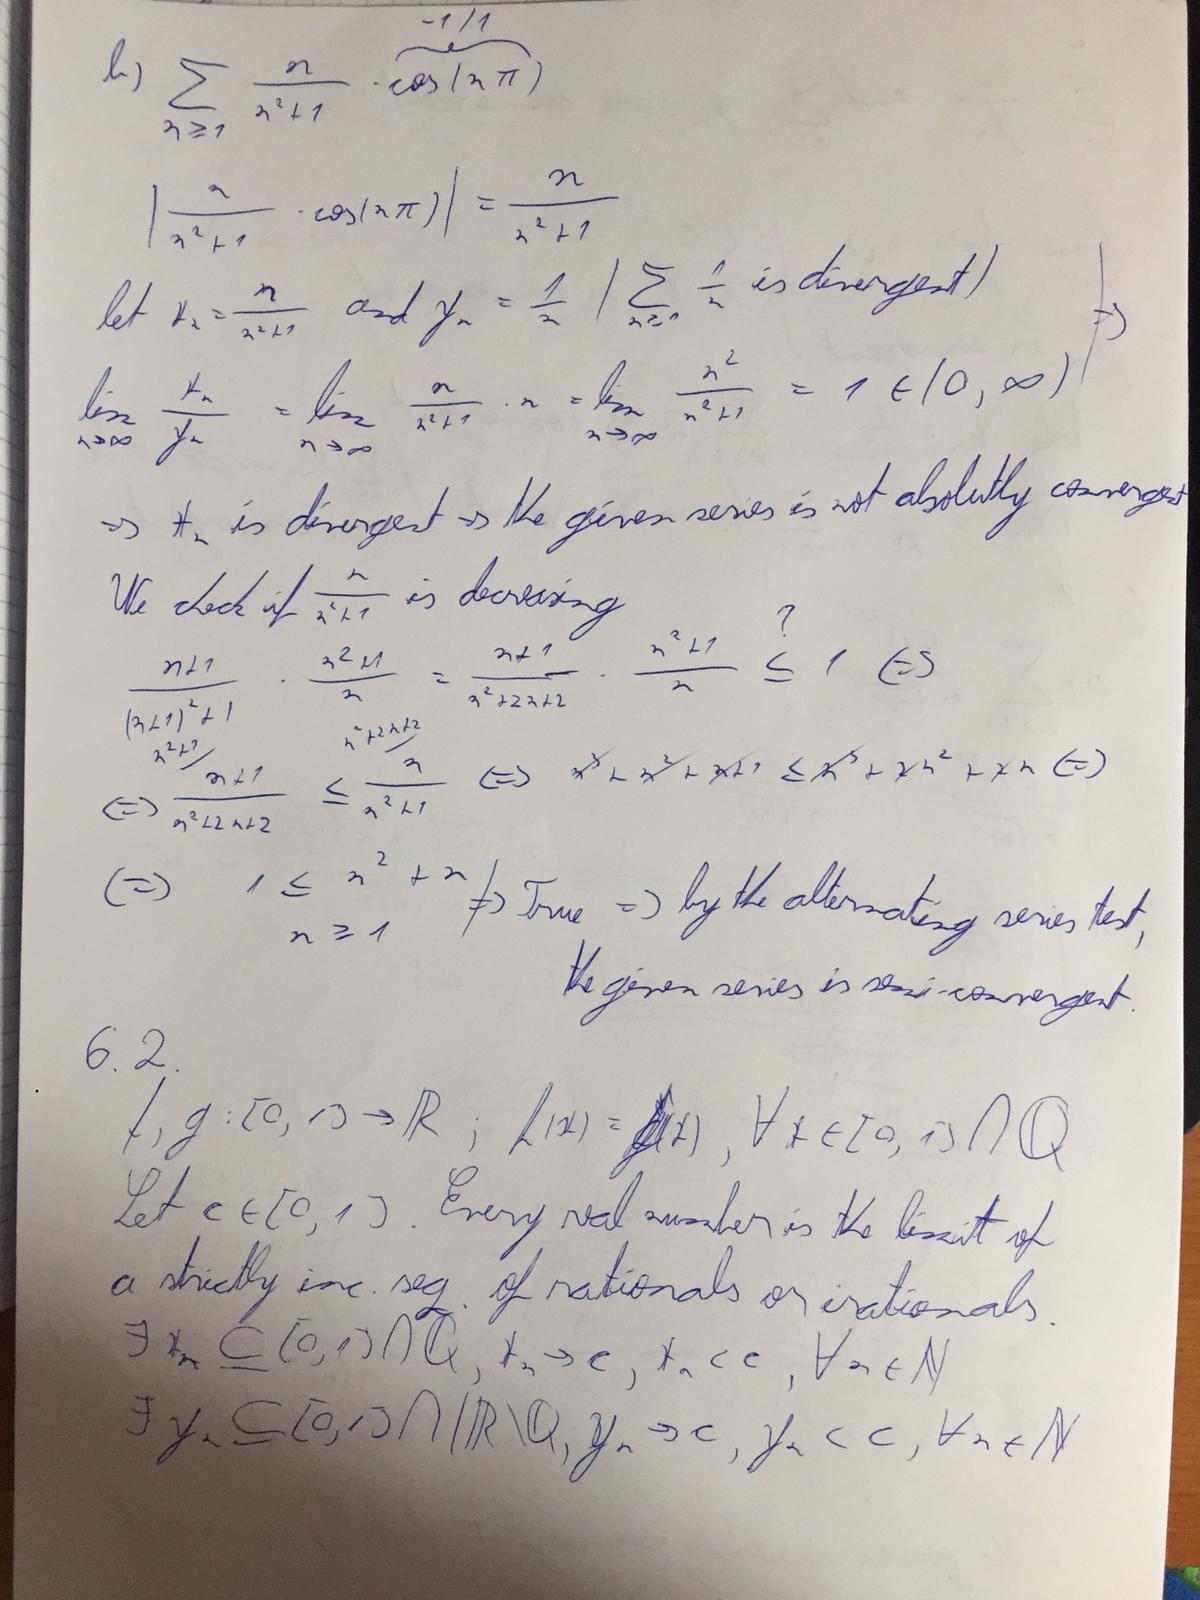 -1/1
b) ∑_{n≥1} n/(n²+1) · cos(nπ)
|n/(n²+1) · cos(nπ)| = n/(n²+1)
let x_n = n/(n²+1) and y_n = 1/n (∑_{n≥1} 1/n is divergent) | =>
lim_{n→∞} x_n/y_n = lim_{n→∞} n/(n²+1) · n = lim_{n→∞} n²/(n²+1) = 1 ∈ (0, ∞)
=> x_n is divergent => the given series is not absolutly convergent
We check if n/(n²+1) is decreasing
(n+1)/((n+1)²+1) · (n²+1)/n = (n+1)/(n²+2n+2) · (n²+1)/n ≤? 1 (=)
(=) n²+1/ (n+1)/(n²+2n+2) ≤ n²+2n+2/ n/(n²+1) (=) n³ + n² + n + 1 ≤ n³ + 2n² + 2n (=)
(=) 1 ≤ n² + n | => True => by the alternating series test,
n ≥ 1
the given series is semi-convergent.
6.2.
f, g : [0, 1] → ℝ ; f(x) = g(x), ∀ x ∈ [0, 1] ∩ ℚ
Let c ∈ [0, 1]. Every real number is the limit of
a strictly inc. seq. of rationals or irationals.
∃ x_n ⊆ [0, 1] ∩ ℚ, x_n → c, x_n < c, ∀ n ∈ ℕ
∃ y_n ⊆ [0, 1] ∩ (ℝ \ ℚ, y_n → c, y_n < c, ∀ n ∈ ℕ